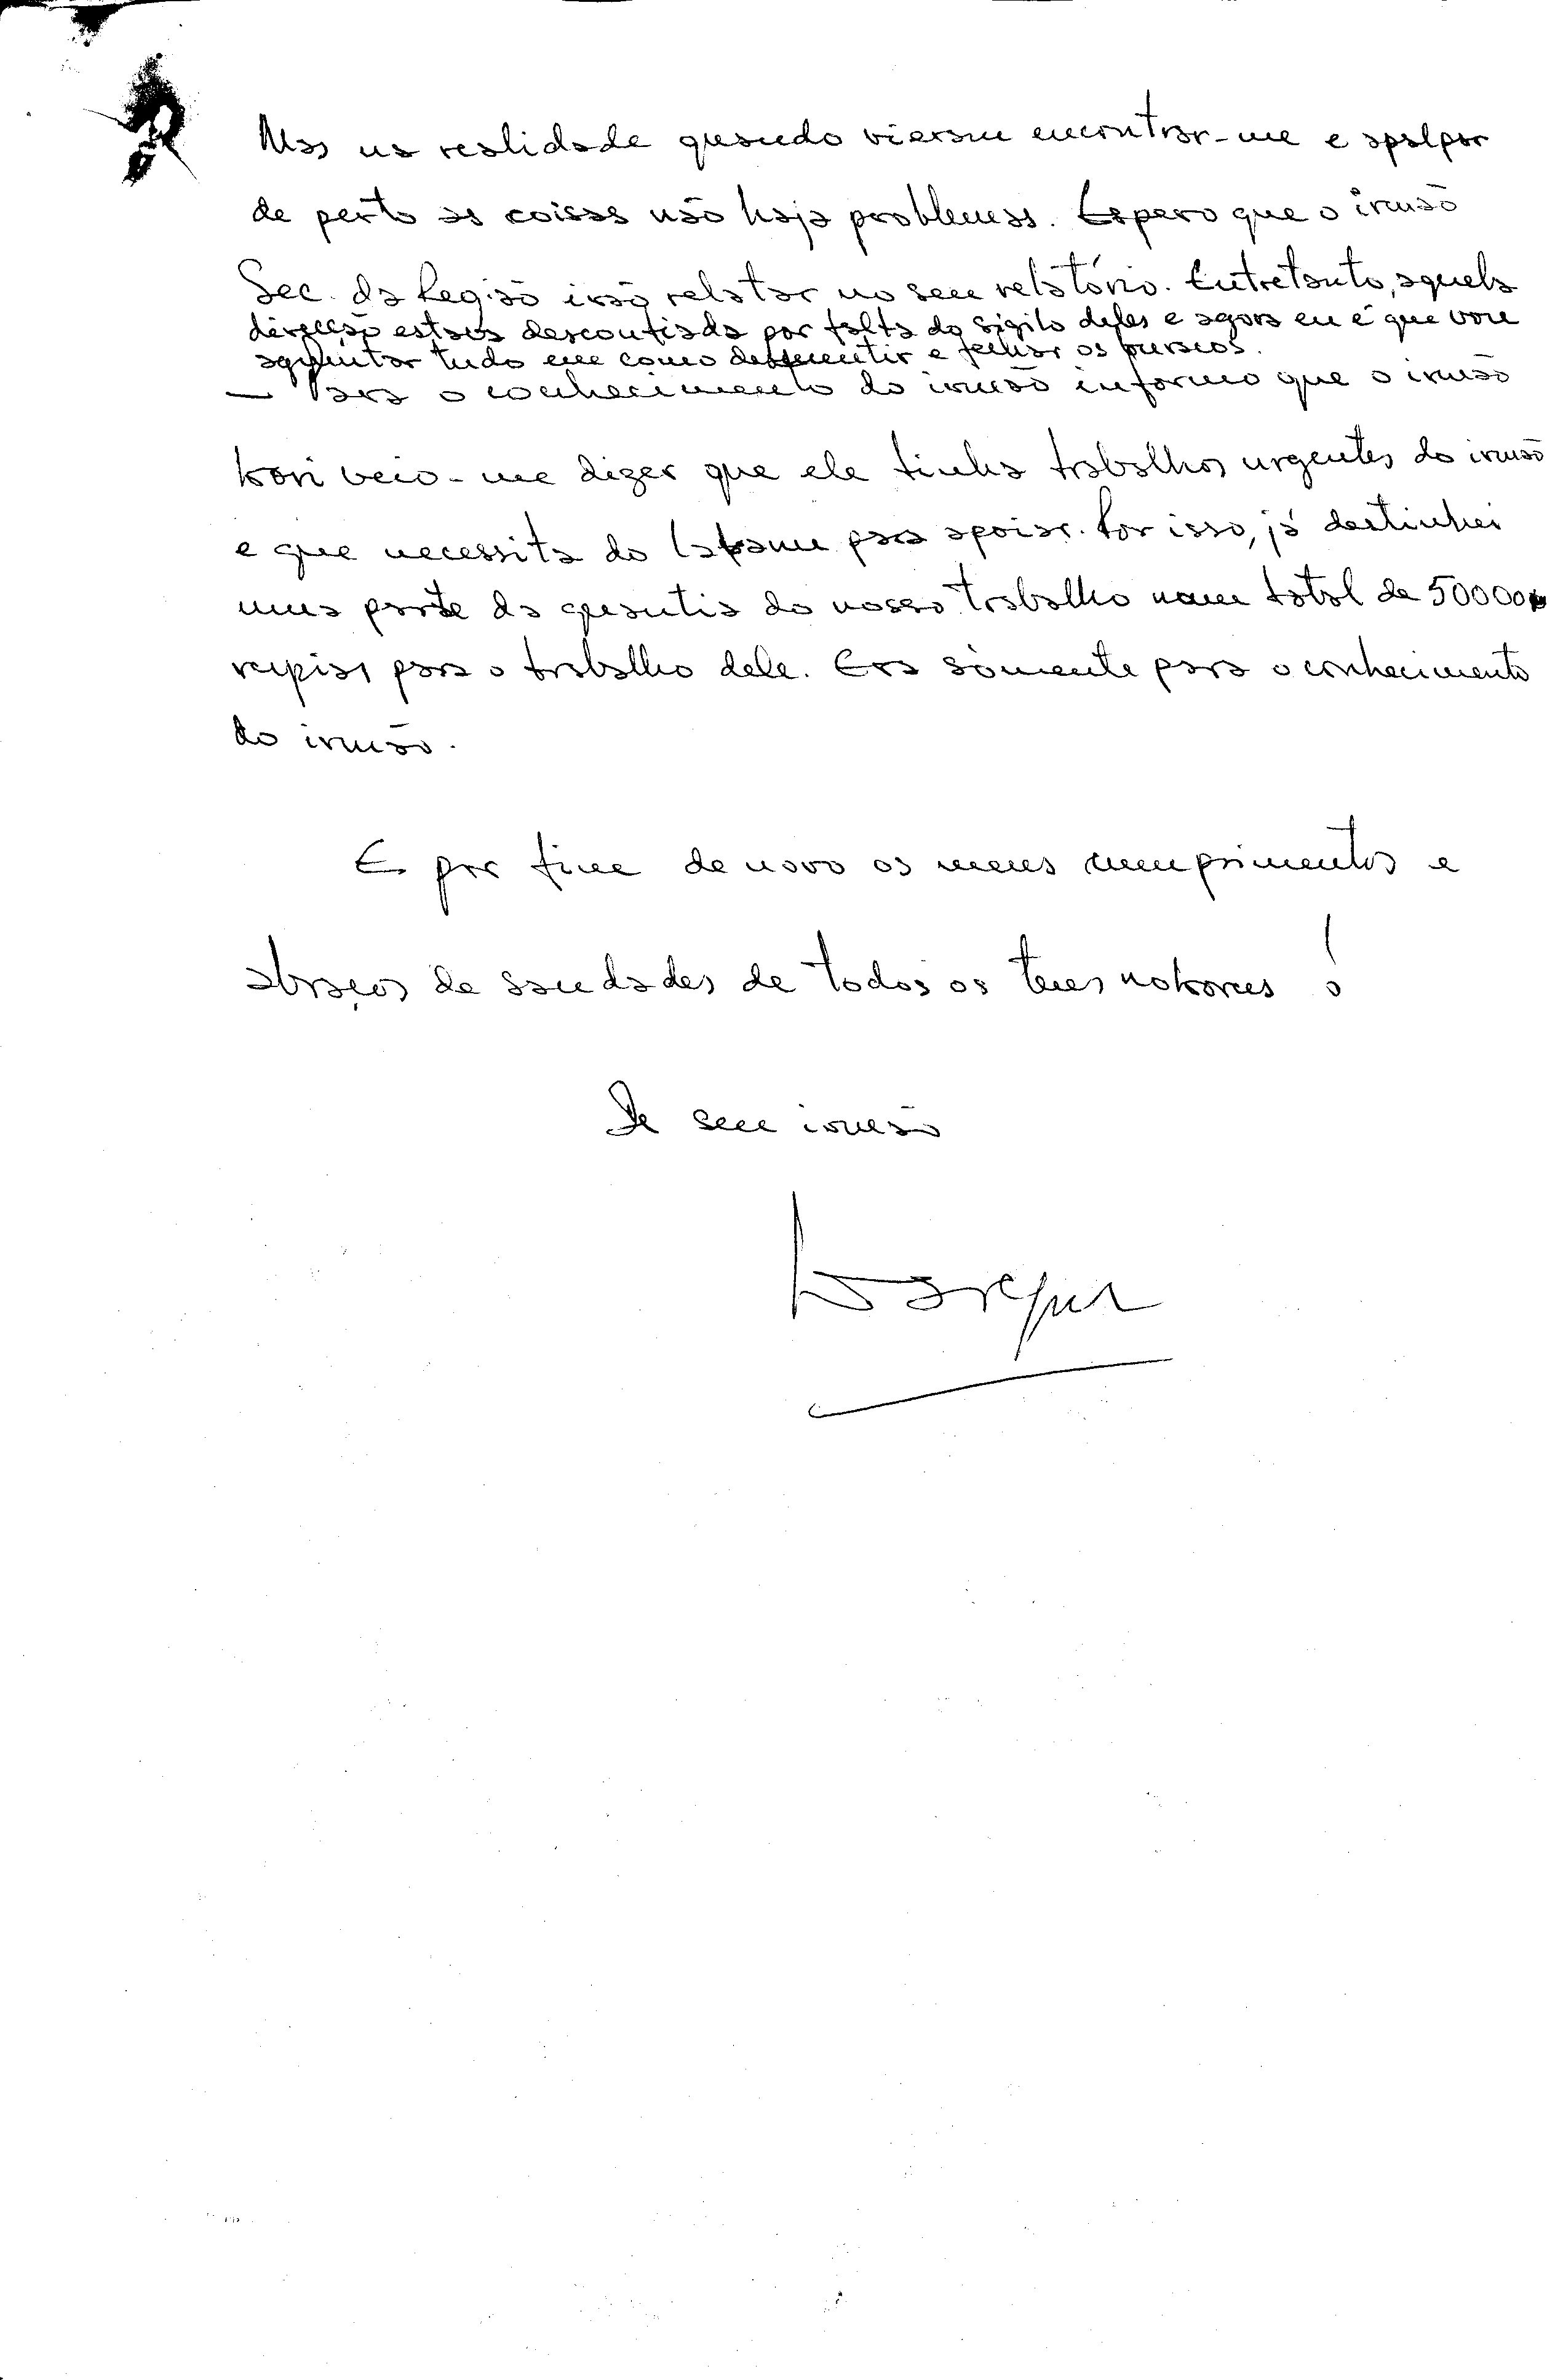 Mas na realidade quando vieram encontrar-me e apalpar
de perto as coisas não haja problemas. Espero que o irmão
Sec. da Região irão relatar no seu relatório. Entretanto, aquela
direcção estava desconfiada por falta do sigilo deles e agora eu é que vou
aguentar tudo em como desmentir e fechar os buracos.
— Para o conhecimento do irmão informo que o irmão
Kori veio-me dizer que ele tinha trabalhos urgentes do irmão
e que necessita do para apoiar. Por isso, já destinhei
uma parte da quantia do nosso trabalho num total de 50000
rupias para o trabalho dele. Era sòmente para o conhecimento
do irmão.
E por fim de novo os meus cumprimentos e
abraços de saudades de todos os teus !
De seu irmão